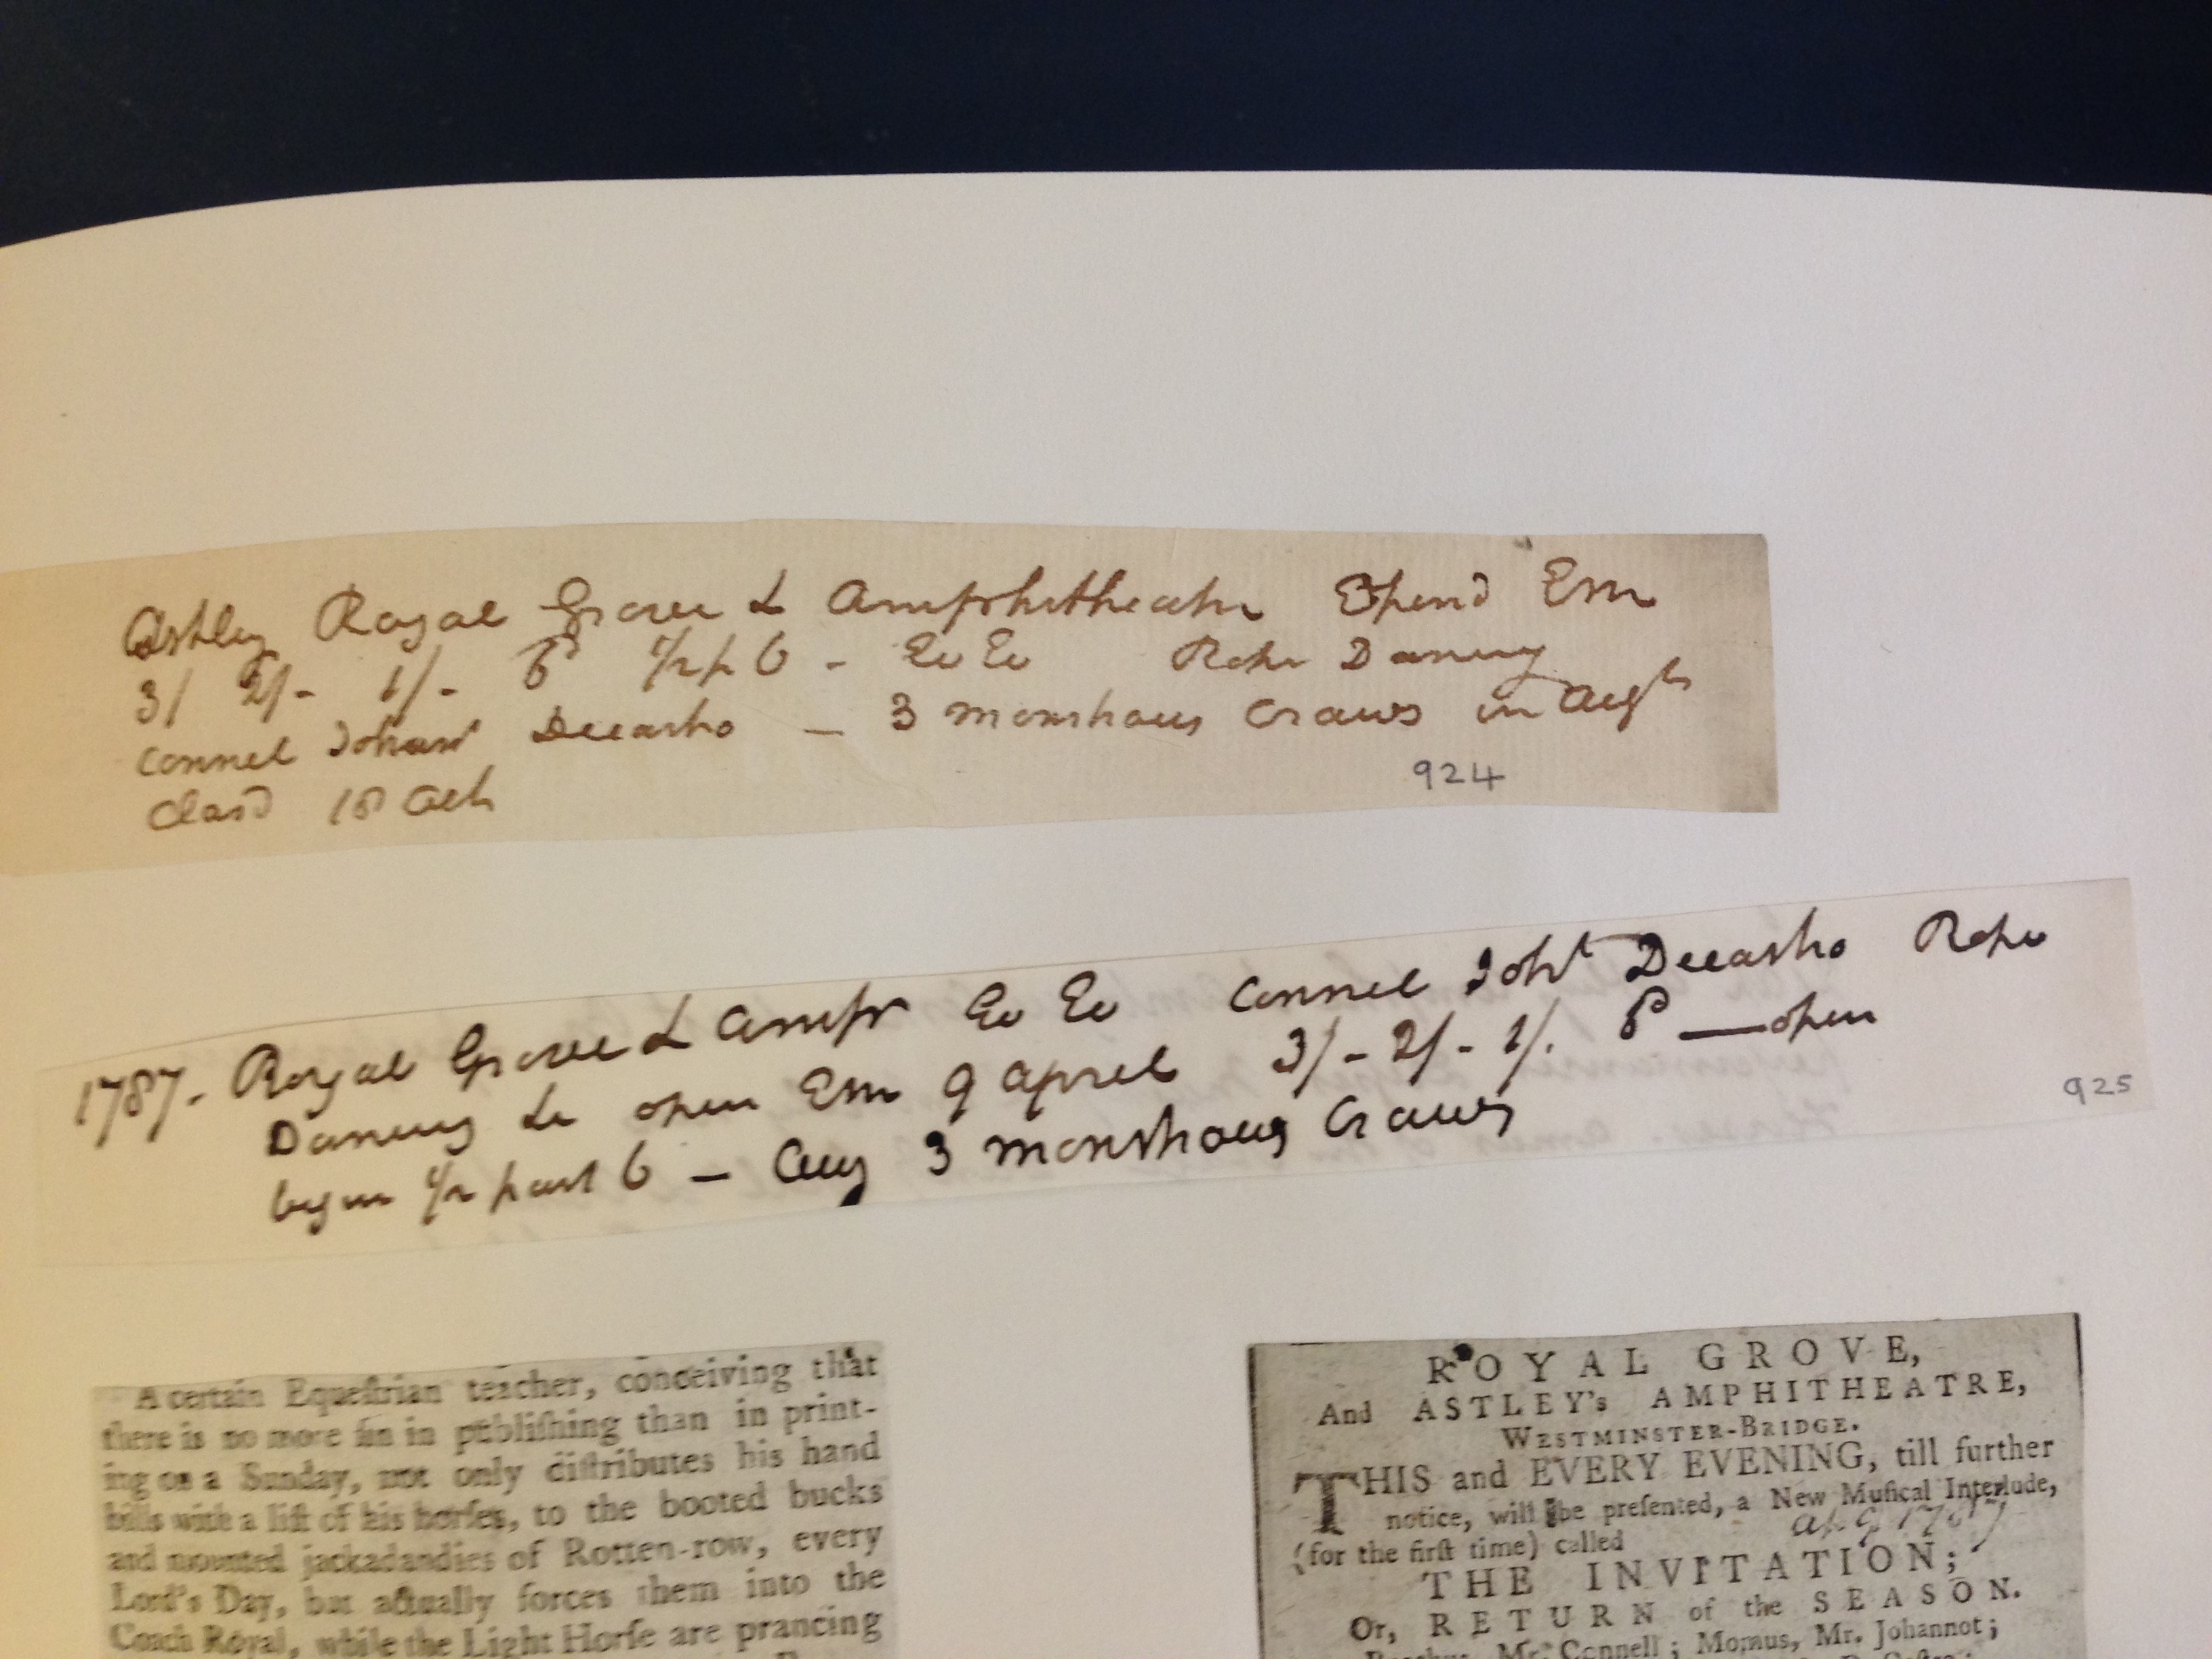 Astley Royal Grove & Amphitheatre Opend Em
3/ 2/- 1/- 6d 1/2 p 6 - Ev Ev Rope Dancing
Connel Johan Decastro — 3 monstrous Craws in Augt
Closd 18 Oct
924
1787. Royal Grove & Amph Ev Ev Connel Joht Decastro Rope
Dancing &c open Em 9 april 3/- 2/- 1/. 6d — open
begin 1/2 past 6 — Aug 3 monstrous Craws
925
A certain Equeſtrian teacher, conceiving that
there is no more ſin in publiſhing than in print-
ing on a Sunday, not only diſtributes his hand
bills with a liſt of his horſes, to the booted bucks
and mounted jackadandies of Rotten-row, every
Lord's Day, but actually forces them into the
Coach Royal, while the Light Horſe are prancing
ROYAL GROVE,
And ASTLEY's AMPHITHEATRE,
WESTMINSTER-BRIDGE.
THIS and EVERY EVENING, till further
notice, will be preſented, a New Muſical Interlude,
(for the firſt time) called
ap 9 1787
THE INVITATION;
Or, RETURN of the SEASON.
Bacchus, Mr. Connell; Momus, Mr. Johannot;